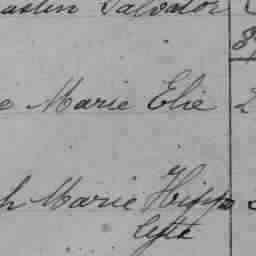 Salvator
e Marie Elie 2
h Marie Hippo
lyte